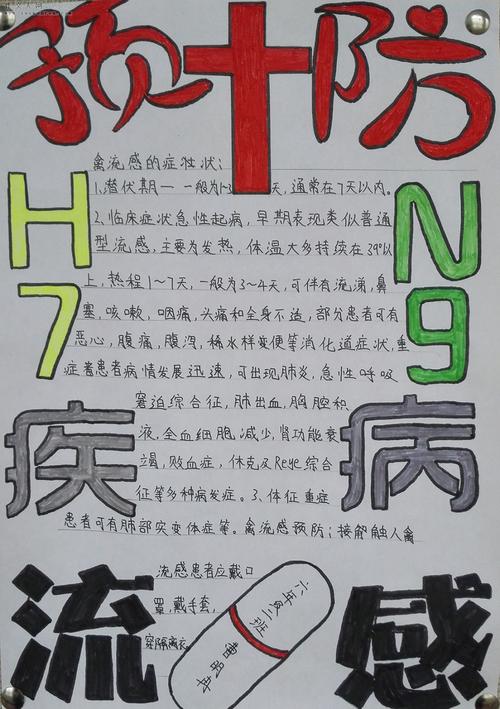 预防
H7
N9
疾病
流感
禽流感的症性状:
1.潜伏期一 一般为1-3 天,通常在7天以内。
2、临床症状急性起病,早期表现类似普通
型流感,主要为发热,体温大多持续在39℃以
上,热程1～7天,一般为3～4天,可伴有流涕,鼻
塞,咳嗽,咽痛,头痛和全身不适,部分患者可有
恶心,腹痛,腹泻,稀水样变便等消化道症状,重
症患者病情发展迅速,可出现肺炎,急性呼吸
窘迫综合征,肺出血,胸腔积
液,全血细胞减少,肾功能衰
竭,败血症,休克及Reye综合
征等多种病发症。3、体征重症
患者可有肺部实变体症等。禽流感预防:接解触人禽
流感患者应戴口
罩,戴手套,
穿隔离衣
六年级二班